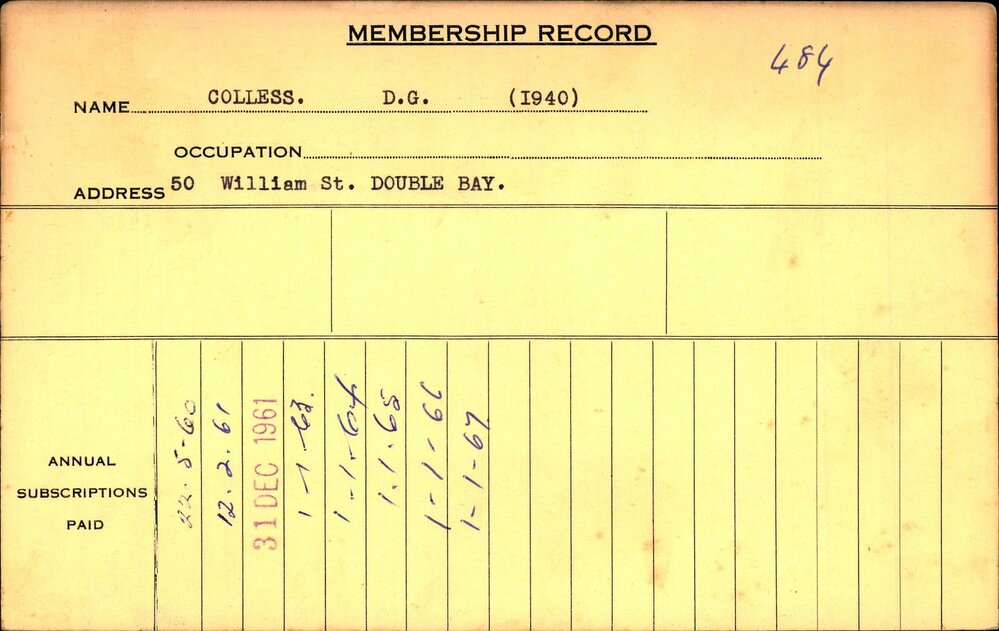 MEMBERSHIP RECORD
484
NAME COLLESS. D.G. (I940)
OCCUPATION
ADDRESS 50 William St. DOUBLE BAY.
ANNUAL
SUBSCRIPTIONS
PAID
22.5-60
12.2.61
31 DEC 1961
1-1-63.
1-1-64
1.1.65
1-1-66
1-1-67